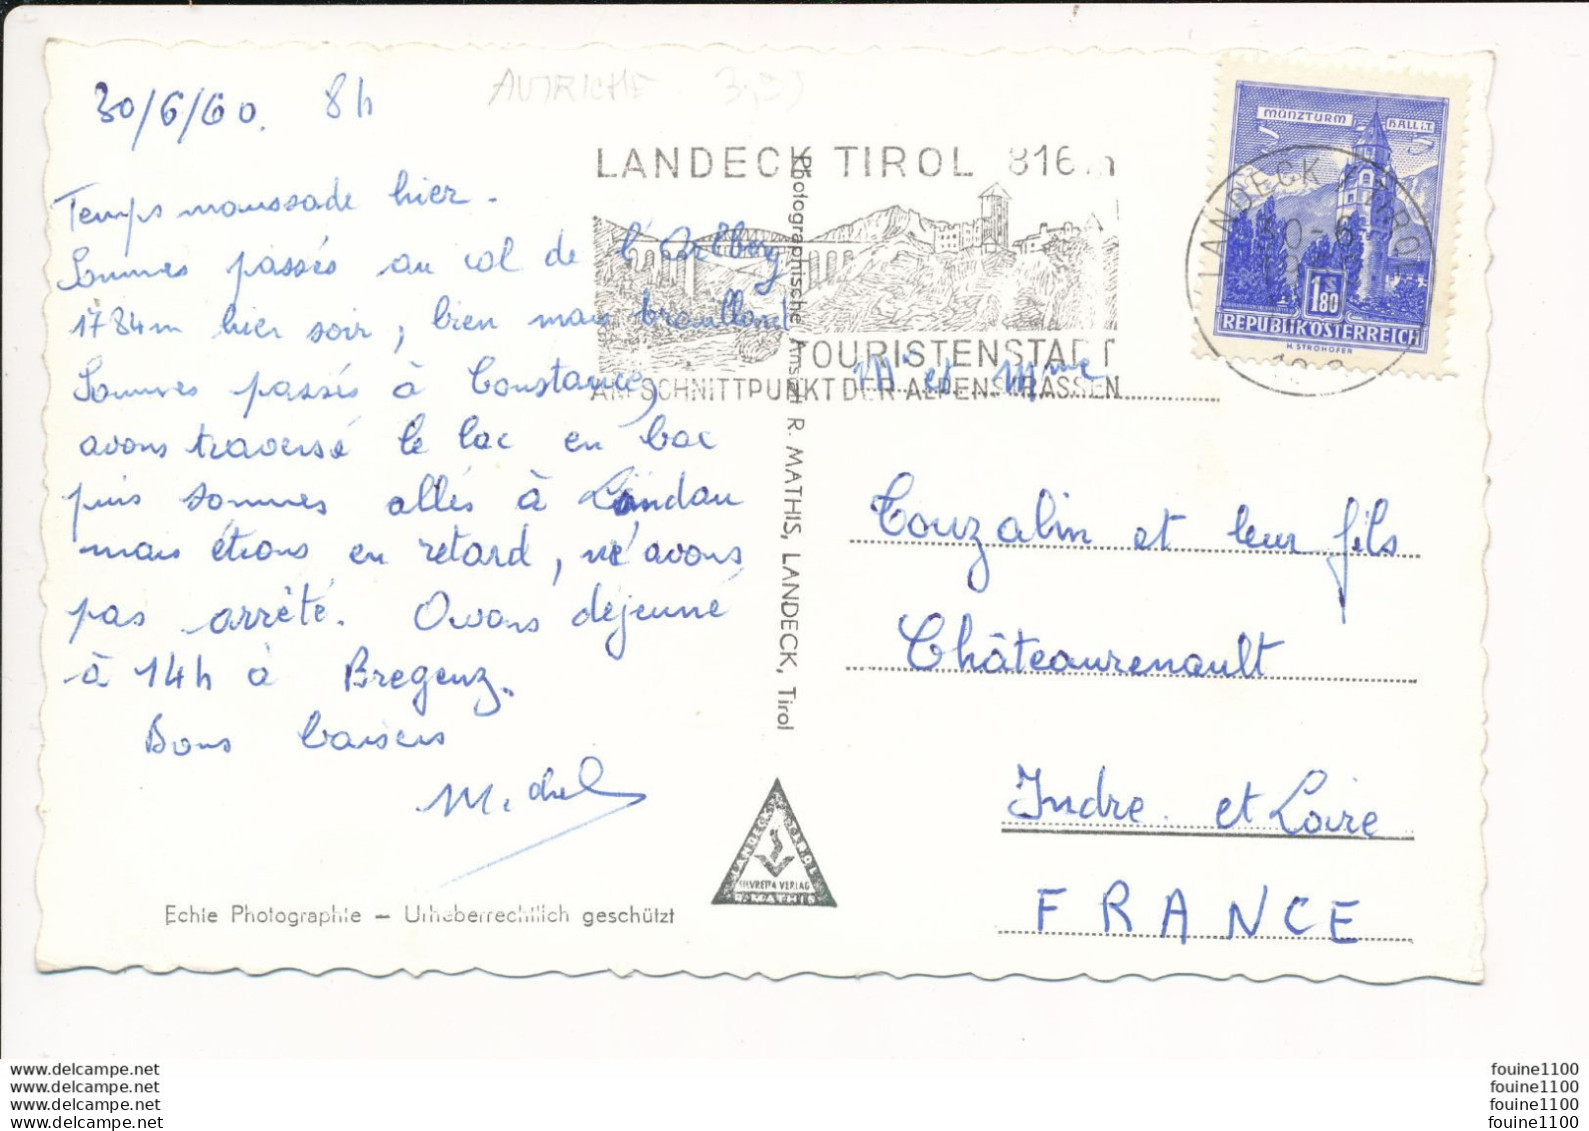 30/6/60. 8h
AUTRICHE
Temps maussade hier.
Sommes passés au col de l'Arlberg
1784m hier soir; bien mais brouillard
Sommes passés à Constance,
avons traversé le lac en bac
puis sommes allés à Landau
mais étions en retard, n'avons
pas arrêté. Avons déjeuné
à 14h à Bregenz.
Bons baisers
Michel
Echte Photographie – Urheberrechtlich geschützt
Photographische Anstalt R. MATHIS, LANDECK, Tirol
LANDECK TIROL
SILVRETTA VERLAG
R. MATHIS
LANDECK TIROL 816 m
TOURISTENSTADT
AM SCHNITTPUNKT DER ALPENSTRASSEN
MÜNZTURM HALL i.T.
1.80
S
REPUBLIK ÖSTERREICH
H. STROHOFER
LANDECK TIROL
30-6
M et Mme
Touzalin et leur fils
Châteaurenault
Indre et Loire
FRANCE
www.delcampe.net
www.delcampe.net
www.delcampe.net
www.delcampe.net
fouine1100
fouine1100
fouine1100
fouine1100